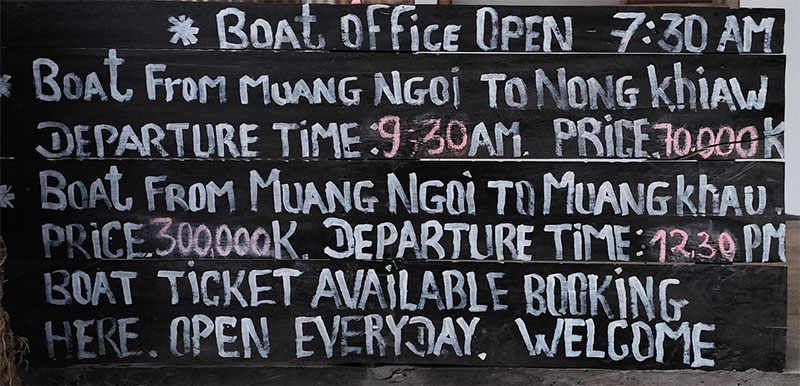 * BOAT OFFICE OPEN 7:30 AM
* BOAT FROM MUANG NGOI TO NONG KHIAW
DEPARTURE TIME: 9:30 AM. PRICE. 70.000 K
* BOAT FROM MUANG NGOI TO MUANG KHAU.
PRICE. 300,000 K. DEPARTURE TIME: 12.30 PM
BOAT TICKET AVAILABLE BOOKING
HERE. OPEN EVERYDAY. WELCOME